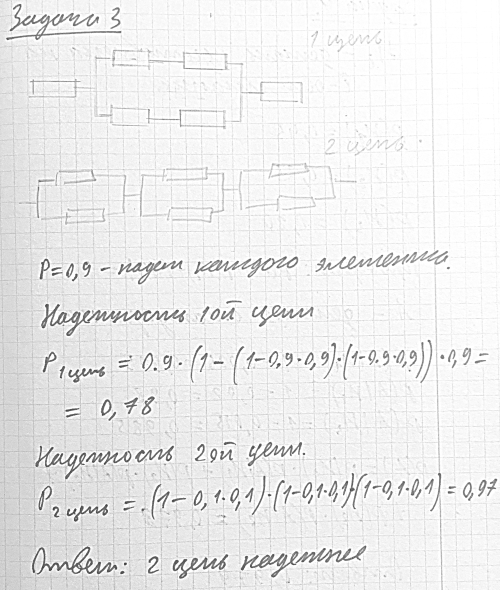 Задача 3
1 цепь
2 цепь.
P=0,9 - надеж каждого элемента.
Надежность 1ой цепи
P1цепь = 0.9 · (1 - (1-0,9·0,9)·(1-0.9·0,9)) · 0,9 =
= 0,78
Надежность 2ой цепи.
P2цепь = (1-0,1·0,1)·(1-0,1·0,1)·(1-0,1·0,1) = 0,97
Ответ: 2 цепь надежнее